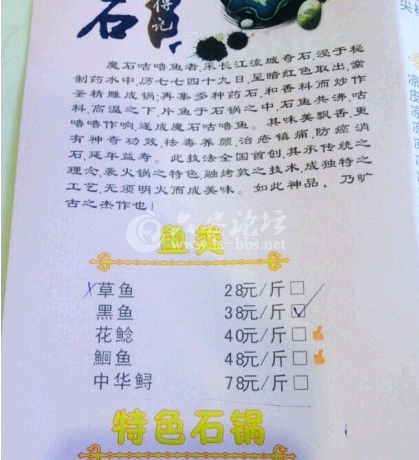 石
得记
魔石咕噜鱼者,采长江流域奇石,浸于秘
制药水中,历七七四十九日,呈暗红色取出,凿
圣精雕成锅;再集多种药石,和香料而炒作
料,高温之下,片鱼于石锅之中,石鱼共沸,咕
噜噜作响,遂成魔石咕噜鱼。其味美飘香,更
有神奇功效,祛毒养颜,治疮镇痛,防癌消
石,延年益寿。此技法全国首创,其承传统之
理念,表火锅之特色,融烤敦之技术,成独特之
工艺,无须明火而成美味。如此神品,乃旷
古之杰作也!
六安论坛
www.la-bbs.net
鱼类
草鱼 28元/斤
黑鱼 38元/斤
花鲶 40元/斤
鮰鱼 48元/斤
中华鲟 78元/斤
特色石锅
凉
皮
凉
凉